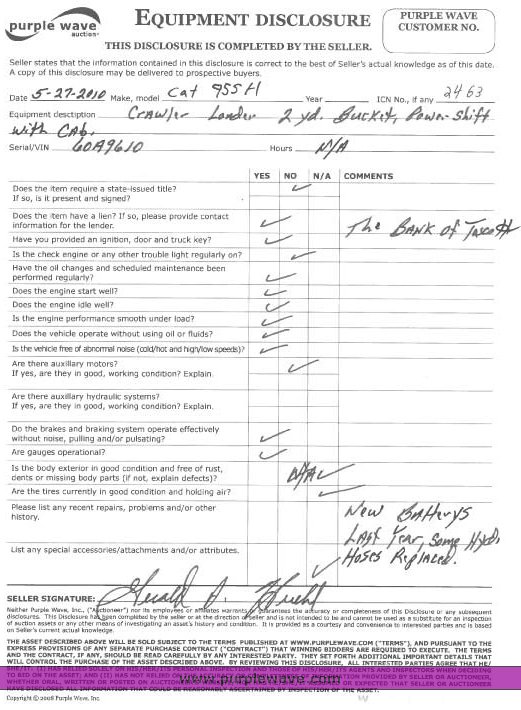 purple wave
auction®
EQUIPMENT DISCLOSURE
PURPLE WAVE
CUSTOMER NO.
THIS DISCLOSURE IS COMPLETED BY THE SELLER.
Seller states that the information contained in this disclosure is correct to the best of Seller's actual knowledge as of this date.
A copy of this disclosure may be delivered to prospective buyers.
Date 5-27-2010 Make, model Cat 955H Year ICN No., if any 2463
Equipment description Crawler Loader 2 yd. Bucket, Power Shift
with CAb.
Serial/VIN 60A9610 Hours N/A
YES NO N/A COMMENTS
Does the item require a state-issued title?
If so, is it present and signed?
Does the item have a lien? If so, please provide contact
information for the lender.
The BANK of Tescott
Have you provided an ignition, door and truck key?
Is the check engine or any other trouble light regularly on?
Have the oil changes and scheduled maintenance been
performed regularly?
Does the engine start well?
Does the engine idle well?
Is the engine performance smooth under load?
Does the vehicle operate without using oil or fluids?
Is the vehicle free of abnormal noise (cold/hot and high/low speeds)?
Are there auxillary motors?
If yes, are they in good, working condition? Explain.
Are there auxillary hydraulic systems?
If yes, are they in good, working condition? Explain.
Do the brakes and braking system operate effectively
without noise, pulling and/or pulsating?
Are gauges operational?
Is the body exterior in good condition and free of rust,
dents or missing body parts (if not, explain defects)?
N/A
Are the tires currently in good condition and holding air?
Please list any recent repairs, problems and/or other
history.
New Batterys
Last Year, Some Hyd.
Hoses Replaced.
List any special accessories/attachments and/or attributes.
SELLER SIGNATURE:
Neither Purple Wave, Inc., ("Auctioneer") nor its employees or affiliates warrants or guarantees the accuracy or completeness of this Disclosure or any subsequent
disclosures. This Disclosure has been completed by the seller or at the direction of seller and is not intended to be and cannot be used as a substitute for an inspection
of auction assets or any other means of investigating an asset's history and condition. It is provided as a courtesy and convenience to interested parties and is based
on Seller's current actual knowledge.
THE ASSET DESCRIBED ABOVE WILL BE SOLD SUBJECT TO THE TERMS PUBLISHED AT WWW.PURPLEWAVE.COM ("TERMS"), AND PURSUANT TO THE
EXPRESS PROVISIONS OF ANY SEPARATE PURCHASE CONTRACT ("CONTRACT") THAT WINNING BIDDERS ARE REQUIRED TO EXECUTE. THE TERMS
AND THE CONTRACT, IF ANY, SHOULD BE READ CAREFULLY BY ANY INTERESTED PARTY. THEY SET FORTH ADDITIONAL IMPORTANT DETAILS THAT
WILL CONTROL THE PURCHASE OF THE ASSET DESCRIBED ABOVE. BY REVIEWING THIS DISCLOSURE, ALL INTERESTED PARTIES AGREE THAT HE/
www.purplewave.com
Copyright © 2008 Purple Wave, Inc.